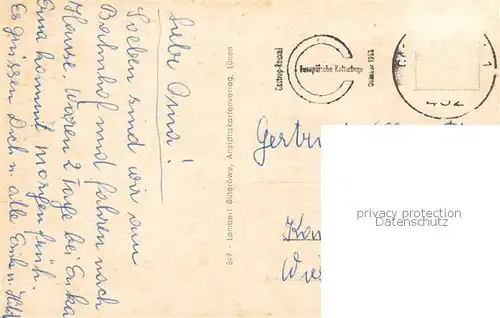 Liebe Oma!
Soeben sind wir am
Bahnhof und fahren nach
Hause. Waren 2 Tage bei Erika
Oma kommt morgen früh.
Es grüssen Dich u. alle Erika u.
649 - Lambert Büterowe, Ansichtskartenverlag, Lünen
Castrop-Rauxel
Europäische Kulturtage
1
462
Gertr
privacy protection
Datenschutz